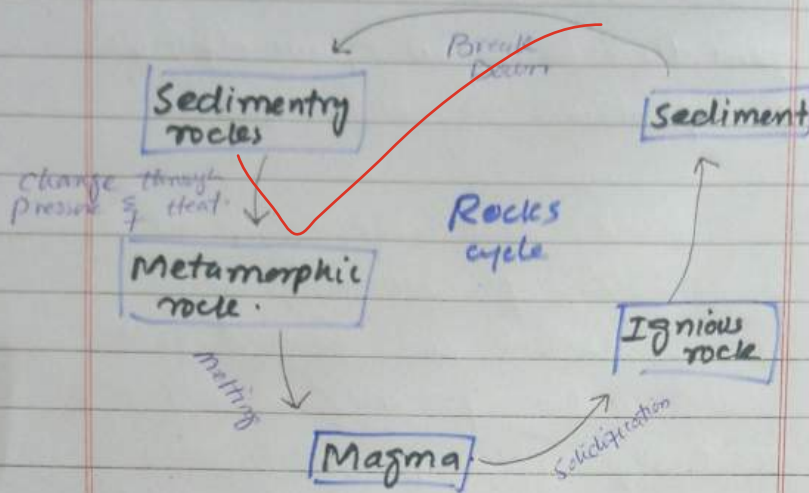 Break
Down
Sedimentry
rocks
Sediment
Change through
Pressure & Heat.
Rocks
cycle
Metamorphic
rock.
Ignious
rock
Melting
Solidification
Magma